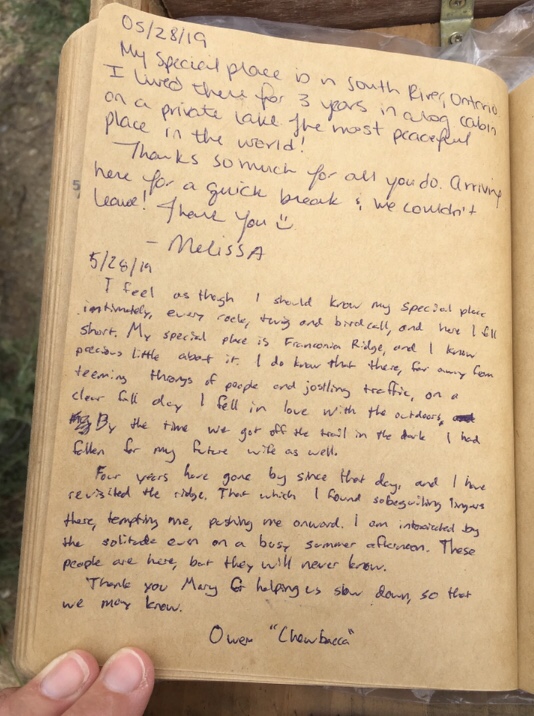 05/28/19
My special place is in South River, Ontario
I lived there for 3 years in a log cabin
on a private lake the most peaceful
place in the world!
Thanks so much for all you do. Arriving
here for a quick break & we couldn't
leave! Thank you
- Melissa
5/28/19
I feel as though I should know my special place
intimately, every rock, twig and birdcall, and here I fall
short. My special place is Franconia Ridge, and I know
precious little about it. I do know that there, far away from
teeming throngs of people and jostling traffic, on a
clear fall day I fell in love with the outdoors,
By the time we got off the trail in the dark I had
fallen for my future wife as well.
Four years have gone by since that day, and I have
revisited the ridge. That which I found so beguiling lingers
there, tempting me, pushing me onward. I am intoxicated by
the solitude even on a busy summer afternoon. These
people are here, but they will never know.
Thank you Mary G helping us slow down, so that
we may know.
Owen "Chewbacca"